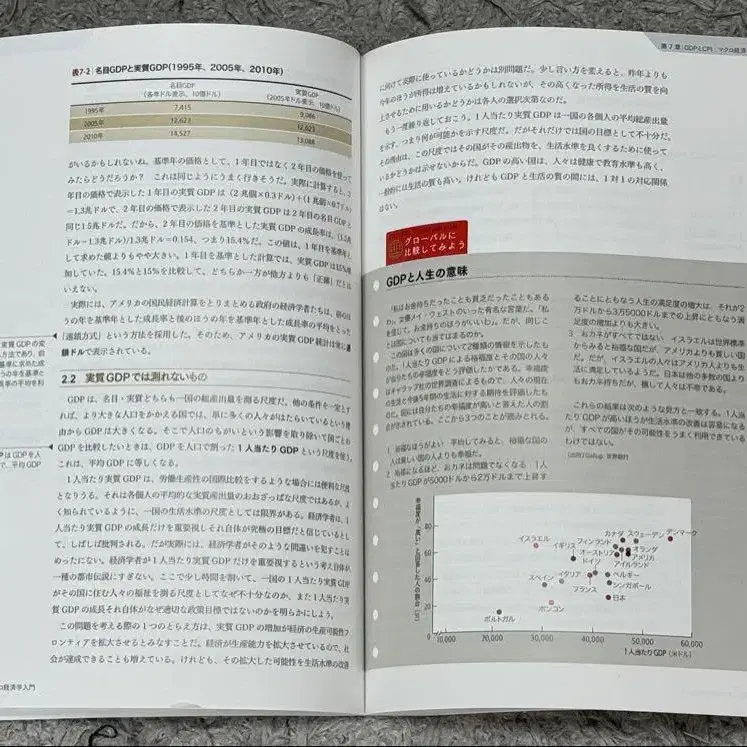 表7-2 名目GDPと実質GDP(1995年、2005年、2010年)
名目GDP
(各年ドル表示、10億ドル)
実質GDP
(2005年ドル表示、10億ドル)
1995年 7,415 9,086
2005年 12,623 12,623
2010年 14,527 13,088
がいるかもしれないね。基準年の価格として、1年目ではなく2年目の価格を使って
みたらどうだろうか? これは同じようにうまく行きそうだ。実際に計算すると、2
年目の価格で表示した1年目の実質GDPは(2兆個×0.3ドル)+(1兆個×0.7ドル)
=1.3兆ドルで、2年目の価格で表示した2年目の実質GDPは2年目の名目GDPと
同じ1.5兆ドルだ。だから、2年目の価格を基準とした実質GDPの成長率は、(1.5兆
ドル−1.3兆ドル)/1.3兆ドル=0.154、つまり15.4%だ。この値は、1年目を基準年と
して求めた値よりもやや大きい。1年目を基準とした計算では、実質GDPは15%増
加していた。15.4%と15%を比較して、どちらか一方が他方よりも「正確」だとは
いえない。
実際には、アメリカの国民経済計算をとりまとめる政府の経済学者たちは、初めほ
うの年を基準年とした成長率と後のほうの年を基準年とした成長率の平均をとった
「連鎖方式」という方法を採用した。そのため、アメリカの実質GDP統計は常に連
鎖ドルで表示されている。
2.2 実質GDPでは測れないもの
GDPは、名目・実質どちらも一国の総産出量を測る尺度だ。他の条件を一定とす
れば、より大きな人口をかかえる国では、単に多くの人々がはたらいているという理
由からGDPは大きくなる。そこで人口のちがいという影響を取り除いて国ごとの
GDPを比較したいときは、GDPを人口で割った1人当たりGDPという尺度を使う。
これは、平均GDPに等しくなる。
1人当たり実質GDPは、労働生産性の国際比較をするような場合には便利な尺度
となりうる。それは各個人の平均的な実質産出量のおおざっぱな尺度ではあるが、よ
く知られているように、一国の生活水準の尺度としては限界がある。経済学者は、1人
当たり実質GDPの成長だけを重要視しそれ自体が究極の目標だと信じているとし
て、しばしば批判される。だが実際には、経済学者がそのような間違いを犯すことは
めったにない。経済学者が1人当たり実質GDPだけを重要視するという考え自体が
一種の都市伝説にすぎない。ここで少し時間を割いて、一国の1人当たり実質GDP
がその国に住む人々の福祉を測る尺度としてなぜ不十分なのか、また1人当たり実
質GDPの成長それ自体がなぜ適切な政策目標ではないのかを明らかにしよう。
この問題を考える際の1つのとらえ方は、実質GDPの増加が経済の生産可能性フ
ロンティアを拡大させるとみなすことだ。経済が生産能力を拡大させているので、社
会が達成できることも増えている。けれども、その拡大した可能性を生活水準の改善
ロ経済学入門
第7章 GDPとCPI マクロ経済
に向けて実際に使っているかどうかは別問題だ。少し言い方を変えると、昨年よりも
今年のほうが所得は増えているかもしれないが、その高くなった所得を生活の質を向
上させるために用いるかどうかは各人の選択次第なのだ。
もう一度繰り返しておこう。1人当たり実質GDPは一国の各個人の平均総産出量
を示す、つまり何が可能かを示す尺度だ。だがそれだけでは国の目標として不十分だ。
その理由は、この尺度ではその国がその産出物を、生活水準を良くするために使って
いるかどうかは示せないからだ。GDPの高い国は、人々は健康で教育水準も高く、
一般的には生活の質も高い。けれどもGDPと生活の質の間には、1対1の対応関係
はない。
グローバルに
比較してみよう
GDPと人生の意味
「私はお金持ちだったことも貧乏だったこともある
わ。女優メイ・ウェストのいった有名な言葉だ。「私
を信じて。お金持ちのほうがいいわ」。だが、同じこ
とは国についても当てはまるのか。
この図は多くの国について2種類の情報を示したも
のだ。1人当たりGDPによる裕福度とその国の人々
が自分たちの幸福度をどう評価したかである。幸福度
はギャラップ社の世界調査によるもので、人々の現在
の生活と今後5年間の生活に対する期待を評価したも
のだ。図には自分たちの幸福度が高いと答えた人の割
合が示されている。ここから3つのことが読みとれる。
1 裕福なほうがよい 平均してみると、裕福な国の
人は貧しい国の人よりも幸福だ。
2 裕福になるほど、おカネは問題でなくなる 1人
当たりGDPが5000ドルから2万ドルまで上昇す
ることにともなう人生の満足度の増大は、それが2
万ドルから3万5000ドルまでの上昇にともなう満
足度の増加よりも大きい。
3 おカネがすべてではない イスラエルは世界標準
からみると裕福な国だが、アメリカよりも貧しい国
だ。だが、イスラエルの人々はアメリカ人よりも生
活に満足しているようだ。日本は他の多数の国より
もお金持ちだが、概して人々は不幸である。
これらの結果は次のような見方と一致する。1人当
たりGDPが高いほうが生活水準の改善は容易になる
が、すべての国がその可能性をうまく利用できている
わけではない。
(出所) Gallup; 世界銀行
幸福度が「高い」と回答した人の割合(%)
80
60
40
20
0
10,000 20,000 30,000 40,000 50,000 60,000
1人当たりGDP(米ドル)
イスラエル
イギリス
フィンランド
カナダ
スウェーデン
デンマーク
オーストリア
オランダ
アメリカ
ドイツ
アイルランド
スペイン
イタリア
ベルギー
フランス
シンガポール
ホンコン
日本
ポルトガル